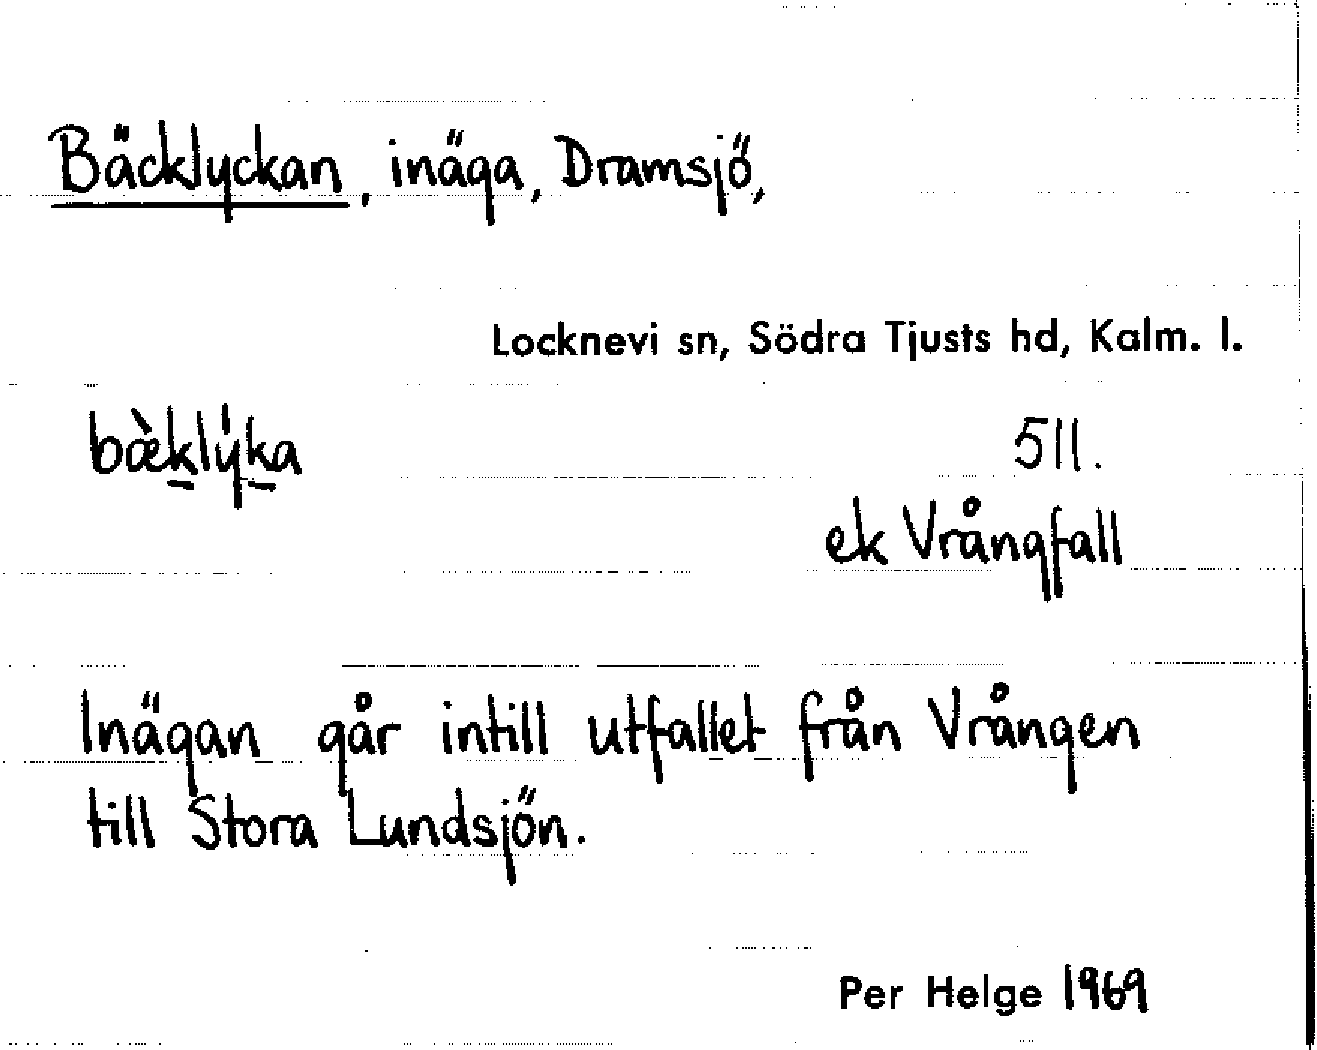 Bäcklyckan, inäga, Dramsjö,
Locknevi sn, Södra Tjusts hd, Kalm. l.
bæ̀k̲lẏk̲a 511.
ek Vrångfall
Inägan går intill utfallet från Vrången
till Stora Lundsjön.
Per Helge 1969